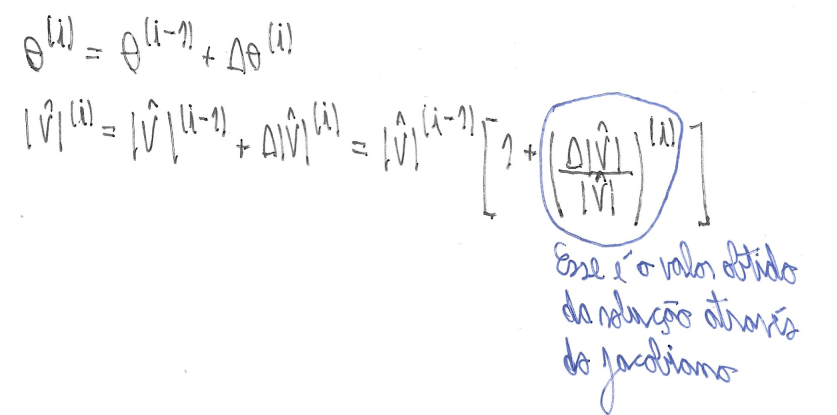 θ^(i) = θ^(i-1) + Δθ^(i)
|V̂|^(i) = |V̂|^(i-1) + Δ|V̂|^(i) = |V̂|^(i-1) [1 + (Δ|V̂|/|V̂|)^(i)]
Esse é o valor obtido
da solução através
do Jacobiano